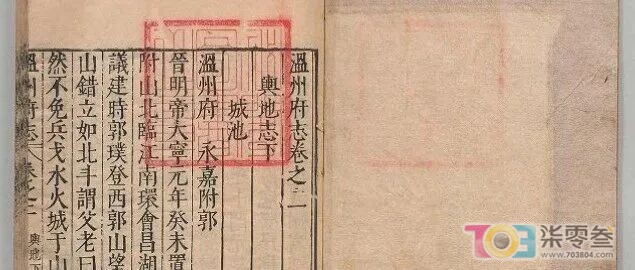 溫州府志卷之二
輿地志下
城池
溫州府 永嘉附郭
晉明帝大寧元年癸未置
附山北臨江南環會昌湖
議建時郭璞登西郭山望
山錯立如北斗謂父老曰
然不免兵戈水火城于山
溫州府志 卷之二 輿地下
703 柒零叁
www.703804.com